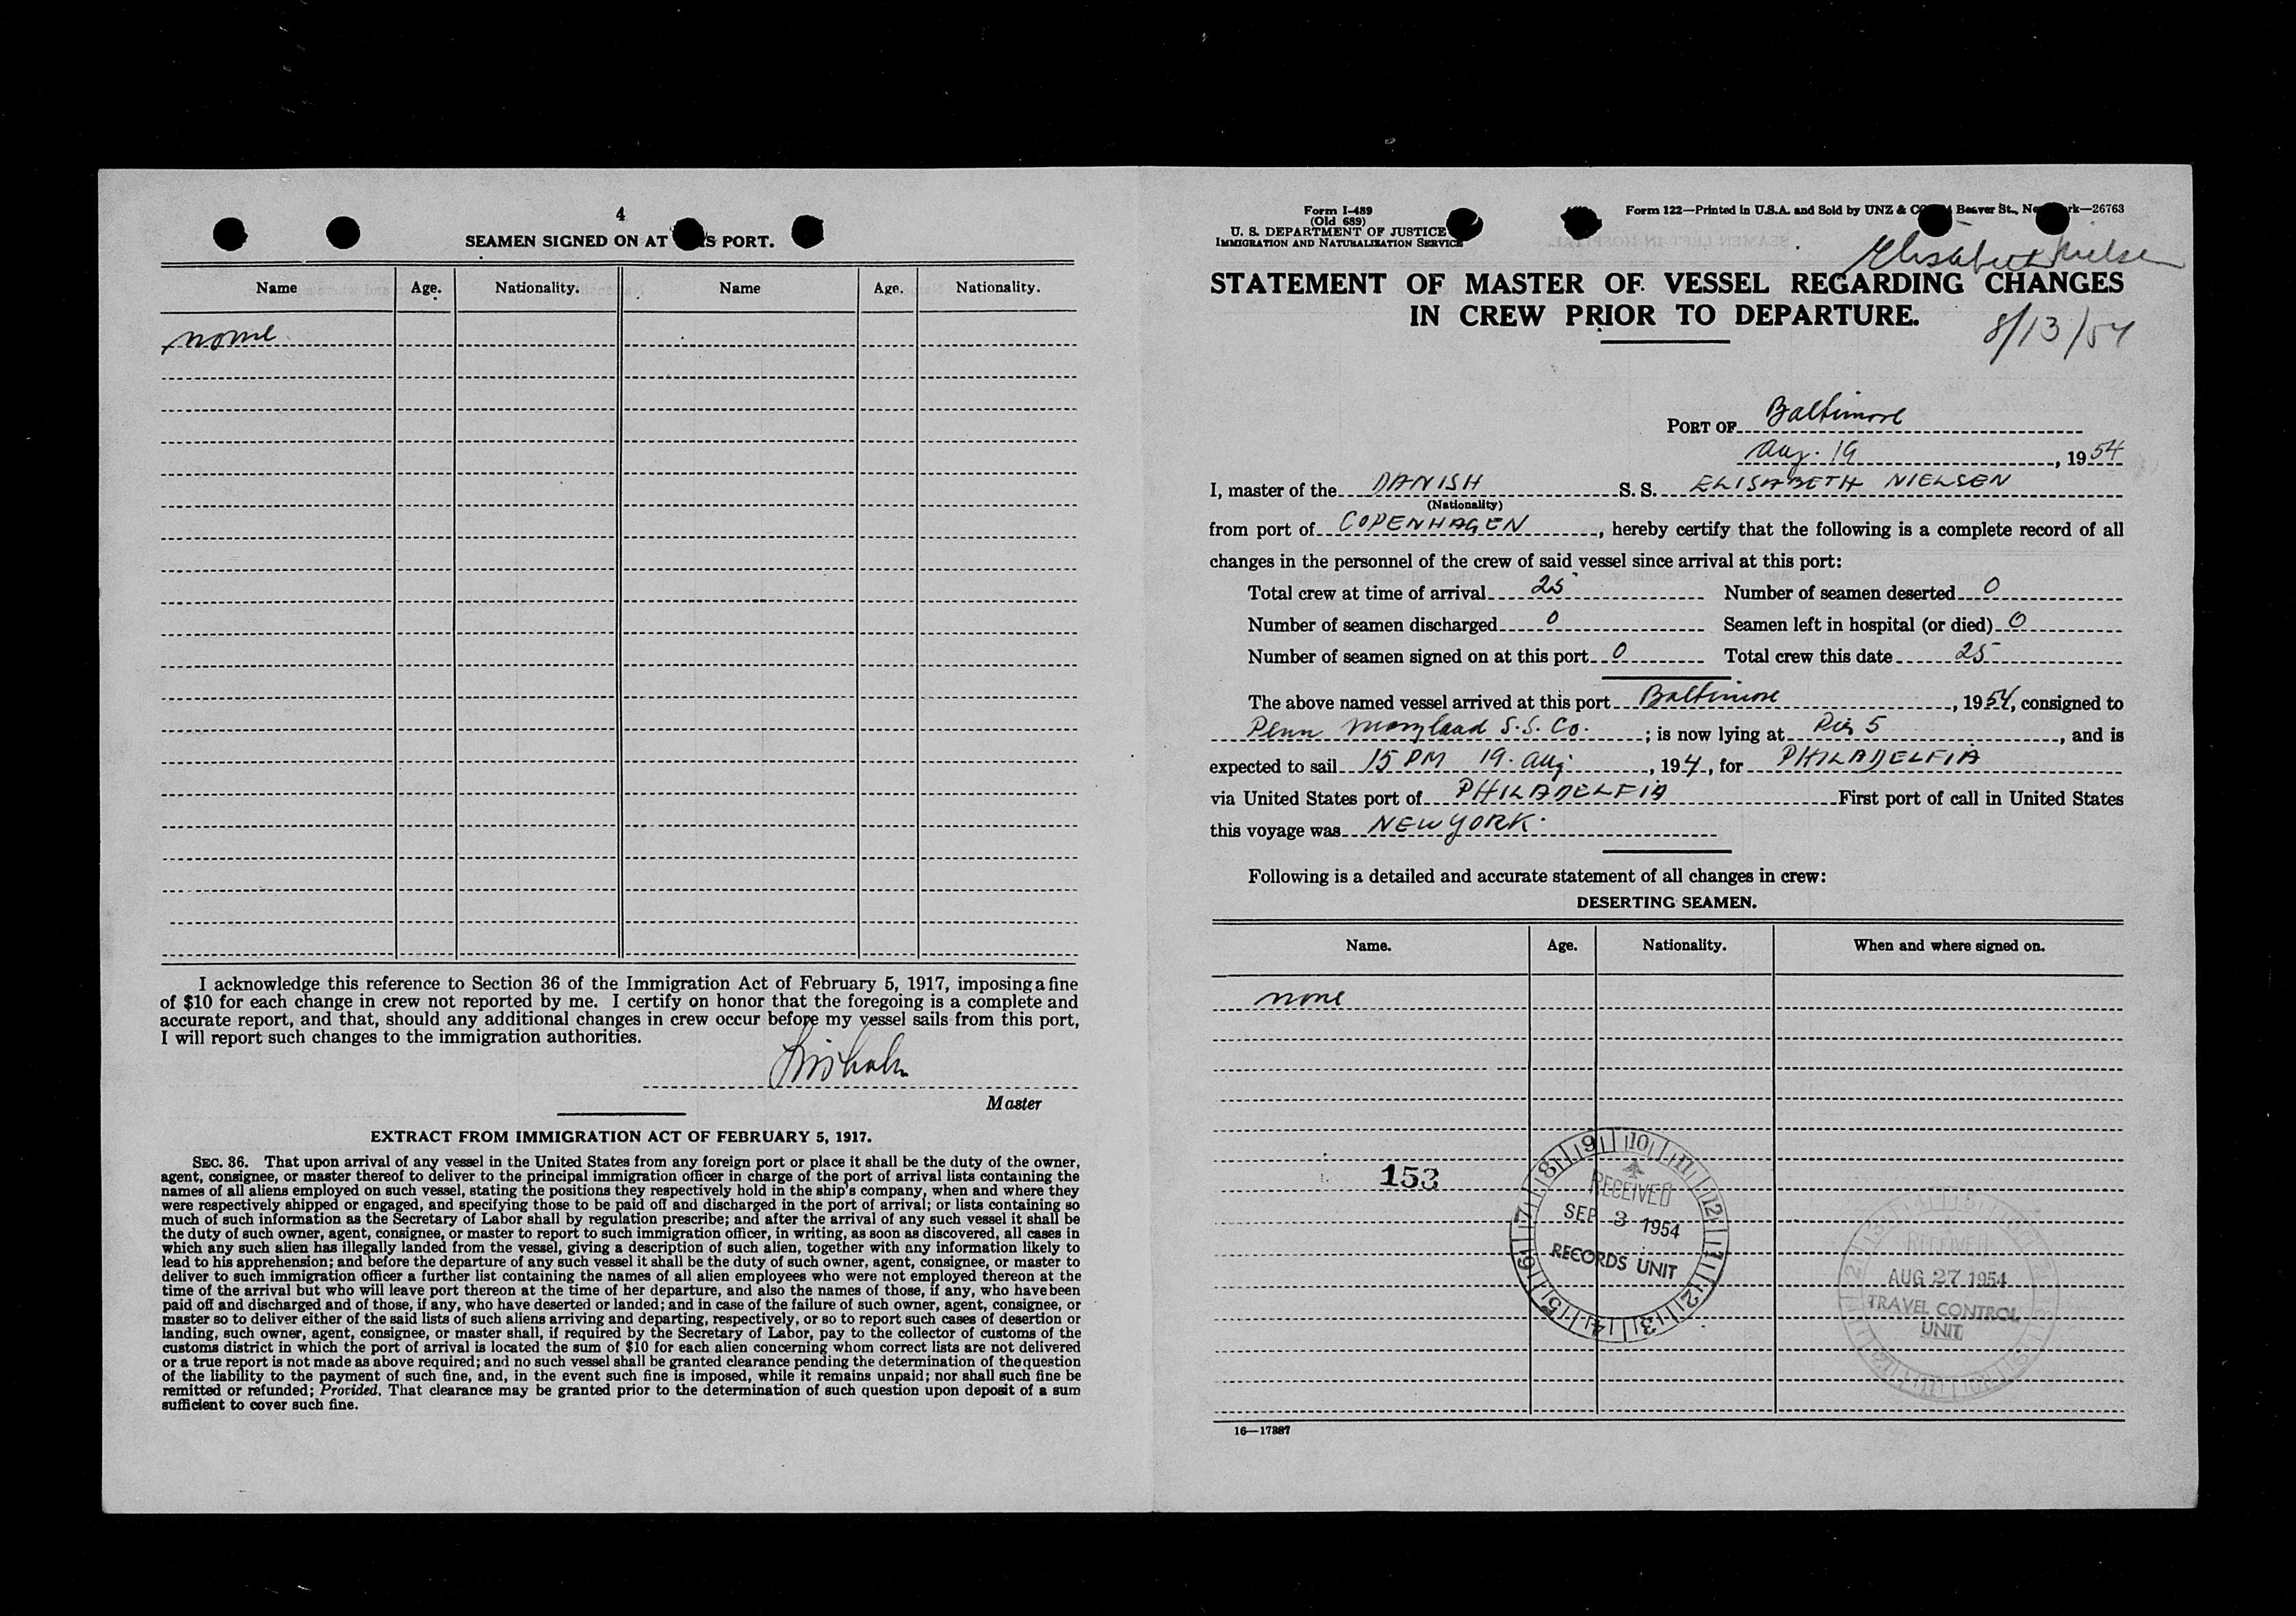 4
SEAMEN SIGNED ON AT S PORT.
Name Age. Nationality. Name Age. Nationality.
none
I acknowledge this reference to Section 36 of the Immigration Act of February 5, 1917, imposing a fine
of $10 for each change in crew not reported by me. I certify on honor that the foregoing is a complete and
accurate report, and that, should any additional changes in crew occur before my vessel sails from this port,
I will report such changes to the immigration authorities.
Master
EXTRACT FROM IMMIGRATION ACT OF FEBRUARY 5, 1917.
SEC. 36. That upon arrival of any vessel in the United States from any foreign port or place it shall be the duty of the owner,
agent, consignee, or master thereof to deliver to the principal immigration officer in charge of the port of arrival lists containing the
names of all aliens employed on such vessel, stating the positions they respectively hold in the ship's company, when and where they
were respectively shipped or engaged, and specifying those to be paid off and discharged in the port of arrival; or lists containing so
much of such information as the Secretary of Labor shall by regulation prescribe; and after the arrival of any such vessel it shall be
the duty of such owner, agent, consignee, or master to report to such immigration officer, in writing, as soon as discovered, all cases in
which any such alien has illegally landed from the vessel, giving a description of such alien, together with any information likely to
lead to his apprehension; and before the departure of any such vessel it shall be the duty of such owner, agent, consignee, or master to
deliver to such immigration officer a further list containing the names of all alien employees who were not employed thereon at the
time of the arrival but who will leave port thereon at the time of her departure, and also the names of those, if any, who have been
paid off and discharged and of those, if any, who have deserted or landed; and in case of the failure of such owner, agent, consignee, or
master so to deliver either of the said lists of such aliens arriving and departing, respectively, or so to report such cases of desertion or
landing, such owner, agent, consignee, or master shall, if required by the Secretary of Labor, pay to the collector of customs of the
customs district in which the port of arrival is located the sum of $10 for each alien concerning whom correct lists are not delivered
or a true report is not made as above required; and no such vessel shall be granted clearance pending the determination of the question
of the liability to the payment of such fine, and, in the event such fine is imposed, while it remains unpaid; nor shall such fine be
remitted or refunded; Provided, That clearance may be granted prior to the determination of such question upon deposit of a sum
sufficient to cover such fine.
Form I-489
(Old 689)
U. S. DEPARTMENT OF JUSTICE
IMMIGRATION AND NATURALIZATION SERVICE
Form 122—Printed in U.S.A. and Sold by UNZ & Beaver St., Ne rk—26763
Elisabeth Nielsen
STATEMENT OF MASTER OF VESSEL REGARDING CHANGES
IN CREW PRIOR TO DEPARTURE.
8/13/54
PORT OF Baltimore
Aug. 19, 1954
I, master of the DANISH S. S. ELISABETH NIELSEN
(Nationality)
from port of COPENHAGEN, hereby certify that the following is a complete record of all
changes in the personnel of the crew of said vessel since arrival at this port:
Total crew at time of arrival 25 Number of seamen deserted 0
Number of seamen discharged 0 Seamen left in hospital (or died) 0
Number of seamen signed on at this port 0 Total crew this date 25
The above named vessel arrived at this port Baltimore, 1954, consigned to
Penn Maryland S.S. Co.; is now lying at Pier 5, and is
expected to sail 15 PM 19. Aug, 194, for PHILADELFIA
via United States port of PHILADELFIA First port of call in United States
this voyage was NEW YORK.
Following is a detailed and accurate statement of all changes in crew:
DESERTING SEAMEN.
Name. Age. Nationality. When and where signed on.
none
153
RECEIVED
SEP 3 1954
RECORDS UNIT
RECEIVED
AUG 27 1954
TRAVEL CONTROL
UNIT
16—17387